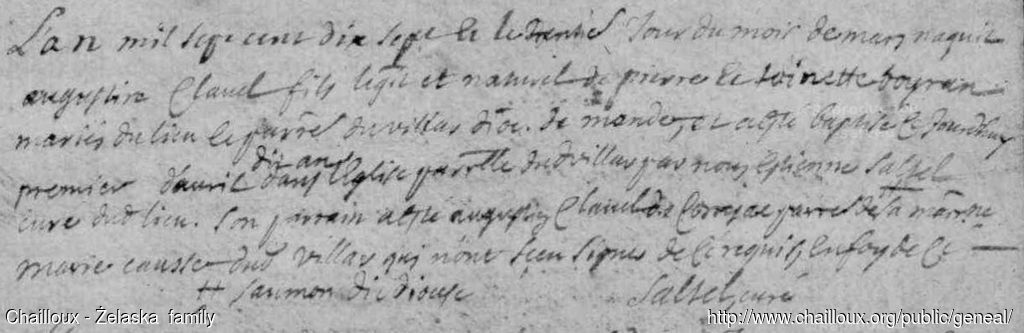 L'an mil sept cent dix sept et le trentiè jour du mois de mars naquit
augustin Clavel fils legit et naturel de pierre et toinette boyran
mariés du lieu et parrel du villar dioc. de mende, et a esté baptisé ce jourdhuy
premier d'avril dit an dans l'Eglise parrlle dud villar par nous, Estienne Saltel
curé dud lieu. Son parrain a esté augustin Clavel de
marie causse dud villar qui n'ont sceu signer de ce requis, en foy de ce
Saltel curé
Chailloux - Želaska family
http://www.chailloux.org/public/geneal/